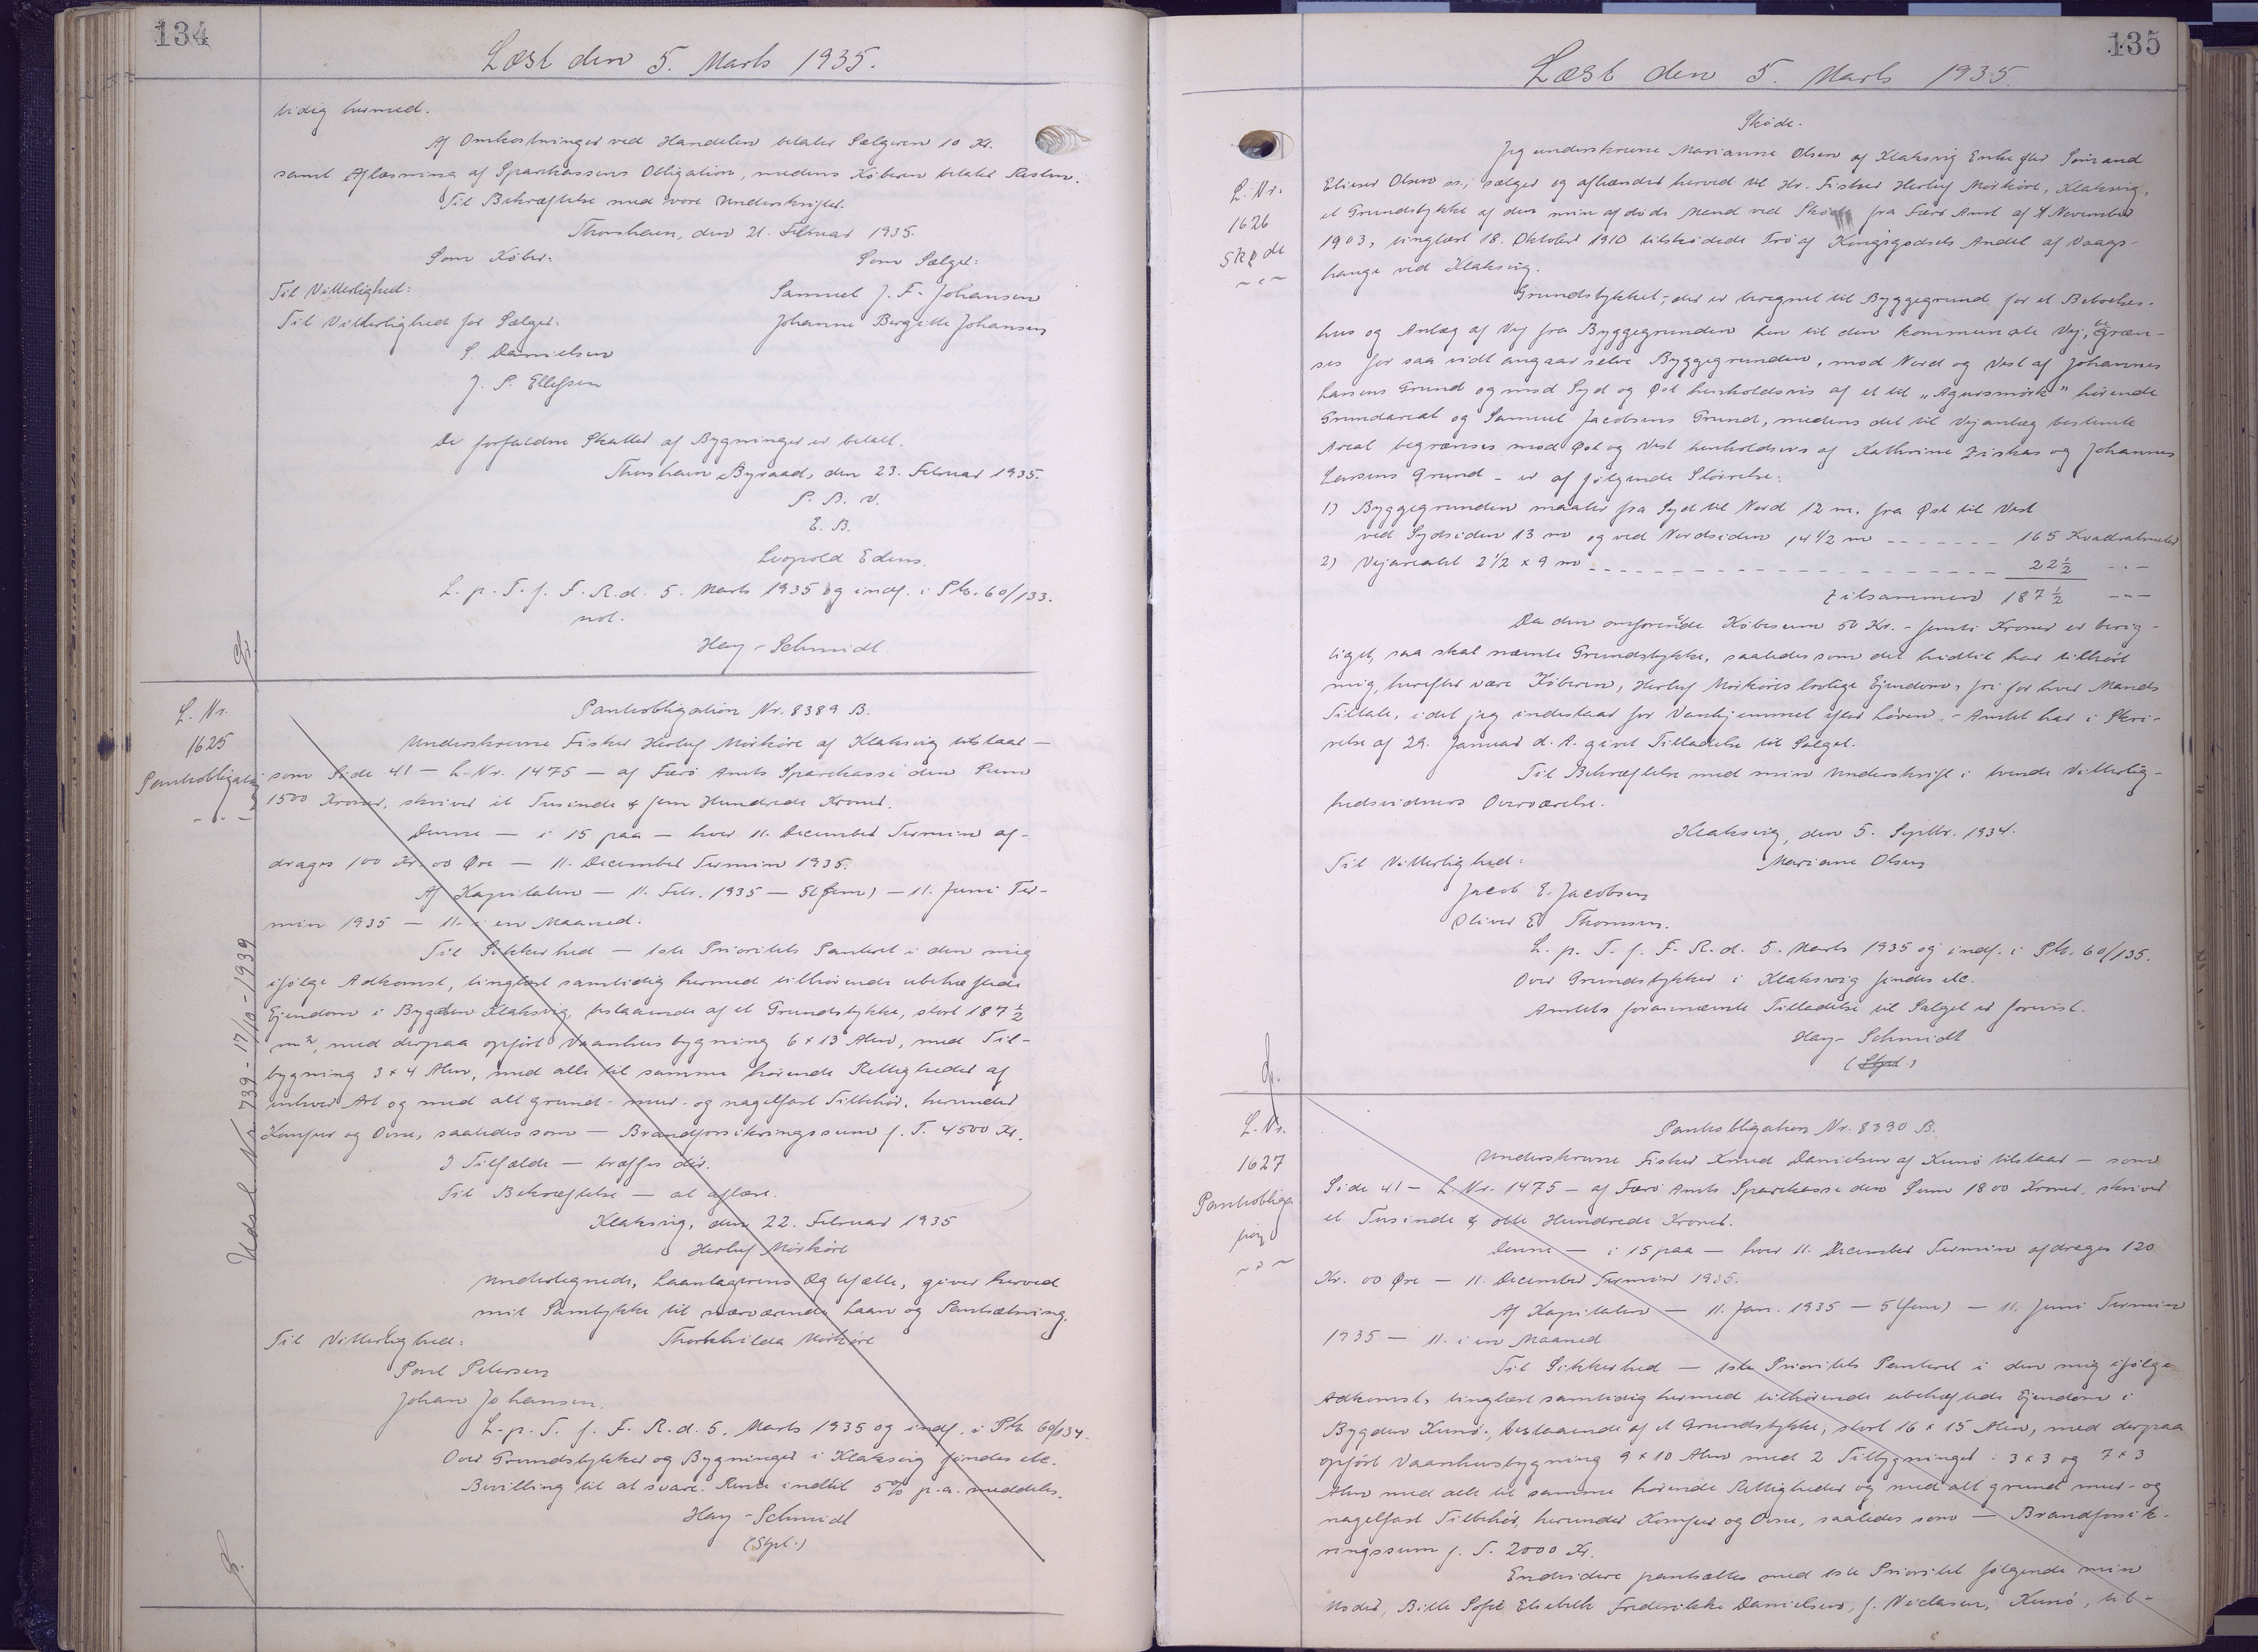 134
Læst den 5. Marts 1935.
tidig hermed.
Af Omkostninger ved Handelen betaler Sælgeren 10 Kr.
samt Aflæsning af Sparekassens Obligation, medens Køberen betaler Resten.
Til Bekræftelse med vore Underskrifter.
Thorshavn, den 21. Februar 1935.
Som Køber: Som Sælger:
Til Vitterlighed: Samuel J. F. Johansen
Til Vitterlighed for Sælger: Johanne Birgitte Johansen
S. Danielsen
J. P. Ellefsen
De forfaldne Skatter af Bygninger er betalt.
Thorshavn Byraad, den 23. Februar 1935.
P. B. V.
E. B.
Leopold Edens.
L. p. T. f. F. R. d. 5. Marts 1935 og indf. i Ptb. 60/133.
not.
Hey-Schmidt
L. Nr.
1625
Pantobligation
Udsl. Nr. 739-17/10-1939
Pantobligation Nr. 8389 B.
Underskrevne Fisker Herluf Mörköre af Klaksvig tilstaar —
som Side 41 — L. Nr. 1475 — af Færö Amts Sparekasse den Sum
1500 Kroner, skriver et Tusinde & fem Hundrede Kroner.
Denne — i 15 paa — hver 11. December Termin af-
drages 100 Kr. 00 Øre — 11. December Termin 1935.
Af Kapitalen — 11. Febr. 1935 — 5 (fem) — 11. Juni Ter-
min 1935 — 11. i en Maaned.
Til Sikkerhed — 1ste Prioritets Panteret i den mig
ifølge Adkomst, tinglæst samtidig hermed tilhørende ubehæftede
Ejendom i Bygden Klaksvig, bestaaende af et Grundstykke, stort 187 ½
m², med derpaa opført Vaanhusbygning 6 x 13 Alen, med Til-
bygning 3 x 4 Alen, med alle til samme hørende Rettigheder af
enhver Art og med alt grund- mur- og nagelfast Tilbehør, herunder
Komfur og Ovne, saaledes som — Brandforsikringssum f. T. 4500 Kr.
I Tilfælde — træffes dér.
Til Bekræftelse — at aflæse.
Klaksvig, den 22. Februar 1935
Herluf Mörköre
Undertegnede, Laantagerens Ægtefælle, giver herved
mit Samtykke til nærværende Laan og Pantsætning.
Til Vitterlighed: Thorhilda Mörköre
Poul Petersen
Johan Johansen.
L. p. T. f. F. R. d. 5. Marts 1935 og indf. i Ptb. 60/134.
Over Grundstykker og Bygninger i Klaksvig findes etc.
Bevilling til at svare Rente indtil 5% p.a. meddeles.
Hey-Schmidt
(Stpl.)
135
Læst den 5. Marts 1935
L. Nr.
1626
Skøde
Skøde.
Jeg underskrevne Marianne Olsen af Klaksvig Enke efter
Elieser Olsen ss; sælger og afhænder herved til Hr. Fisker Herluf Mörköre, Klaksvig,
et Grundstykke af den min afdøde Mand ved Skøde fra Færö Amt af 4 November
1903, tinglæst 18. Oktober 1910 tilskødede Trø af Kongsgodsets Andel af Vaags-
hauge ved Klaksvig.
Grundstykket, der er beregnet til Byggegrund for et Beboelses-
hus og Anlæg af Vej fra Byggegrunden hen til den kommunale Vej, begræn-
ses for saa vidt angaar selve Byggegrunden, mod Nord og Vest af Johannes
Larsens Grund og mod Syd og Øst henholdsvis af et til „Agnesmörk" hørende
Grundareal og Samuel Jacobsens Grund, medens det til Vejanlæg bestemte
Areal begrænses mod Øst og Vest henholdsvis af Kathrine Ziskas og Johannes
Larsens Grund - er af følgende Størrelse:
1) Byggegrunden maaler fra Syd til Nord 12 m. fra Øst til Vest
ved Sydsiden 13 m og ved Nordsiden 14 1/2 m - - - - - - - 165 Kvadratmeter
2) Vejarealet 2 1/2 x 9 m - - - - - - - - - - - - - 22 ½ - - -
tilsammen 187 ½ - - -
Da den omforenede Købesum 50 Kr. - femti Kroner er berig-
tiget, saa skal nævnte Grundstykke, saaledes som det hidtil har tilhørt
mig, herefter være Køberen, Herluf Mörköres lovlige Ejendom, fri for hver Mands
Tiltale, idet jeg indestaar for Vanhjemmel efter Loven. - Amtet har i Skri-
velse af 29. Januar d. A. givet Tilladelse til Salget.
Til Bekræftelse med min Underskrift i tvende Vitterlig-
hedsvidners Overværelse.
Klaksvig, den 5. Septbr. 1934.
Til Vitterlighed: Mariane Olsen
Jacob E. Jacobsen
Oliver E Thomsen.
L. p. T. f. F. R. d. 5. Marts 1935 og indf. i Ptb. 60/135.
Over Grundstykker i Klaksvig findes etc.
Amtets forannævnte Tilladelse til Salget er forevist.
Hey-Schmidt
(Stpl.)
L. Nr.
1627
Pantobliga
tion
Pantobligation Nr. 8390 B.
Underskrevne Fisker Knud Danielsen af Kunö tilstaar — som
Side 41 — L. Nr. 1475 — af Færö Amts Sparekasse den Sum 1800 Kroner, skriver
et Tusinde & otte Hundrede Kroner.
Denne — i 15 paa — hver 11. December Termin afdrages 120
Kr. 00 Øre — 11. December Termin 1935.
Af Kapitalen — 11. Jan. 1935 — 5 (fem) — 11. Juni Termin
1935 — 11. i en Maaned
Til Sikkerhed — 1ste Prioritets Panteret i den mig ifølge
Adkomst, tinglæst samtidig hermed tilhørende ubehæftede Ejendom i
Bygden Kunö, bestaaende af et Grundstykke, stort 16 x 15 Alen, med derpaa
opført Vaanhusbygning 9 x 10 Alen med 2 Tilbygninger: 3 x 3 og 7 x 3
Alen med alle til samme hørende Rettigheder og med alt grund mur- og
nagelfast Tilbehør, herunder Komfur og Ovne, saaledes som — Brandforsik-
ringssum f. T. 2000 Kr.
Endvidere pantsættes med 1ste Prioritet følgende min
Moder, Bille Sofie Elsebeth Frederikke Danielsen, f. Niclasen, Kunö, til-